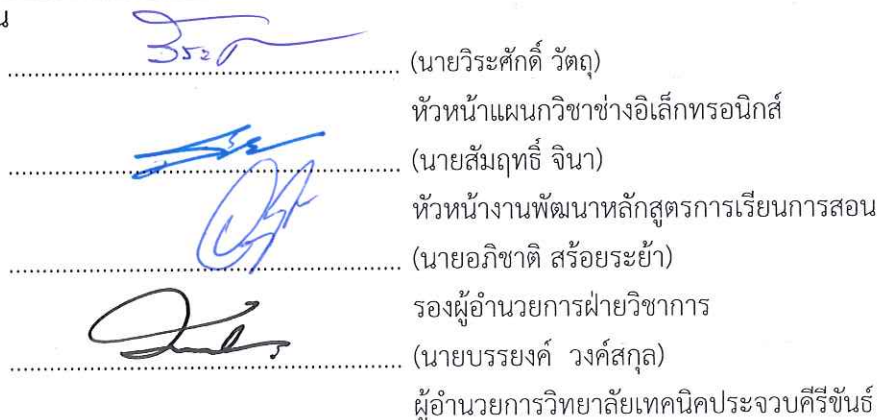 น
(นายวิระศักดิ์ วัตถุ)
หัวหน้าแผนกวิชาช่างอิเล็กทรอนิกส์
(นายสัมฤทธิ์ จินา)
หัวหน้างานพัฒนาหลักสูตรการเรียนการสอน
(นายอภิชาติ สร้อยระย้า)
รองผู้อำนวยการฝ่ายวิชาการ
(นายบรรยงค์ วงค์สกุล)
ผู้อำนวยการวิทยาลัยเทคนิคประจวบคีรีขันธ์